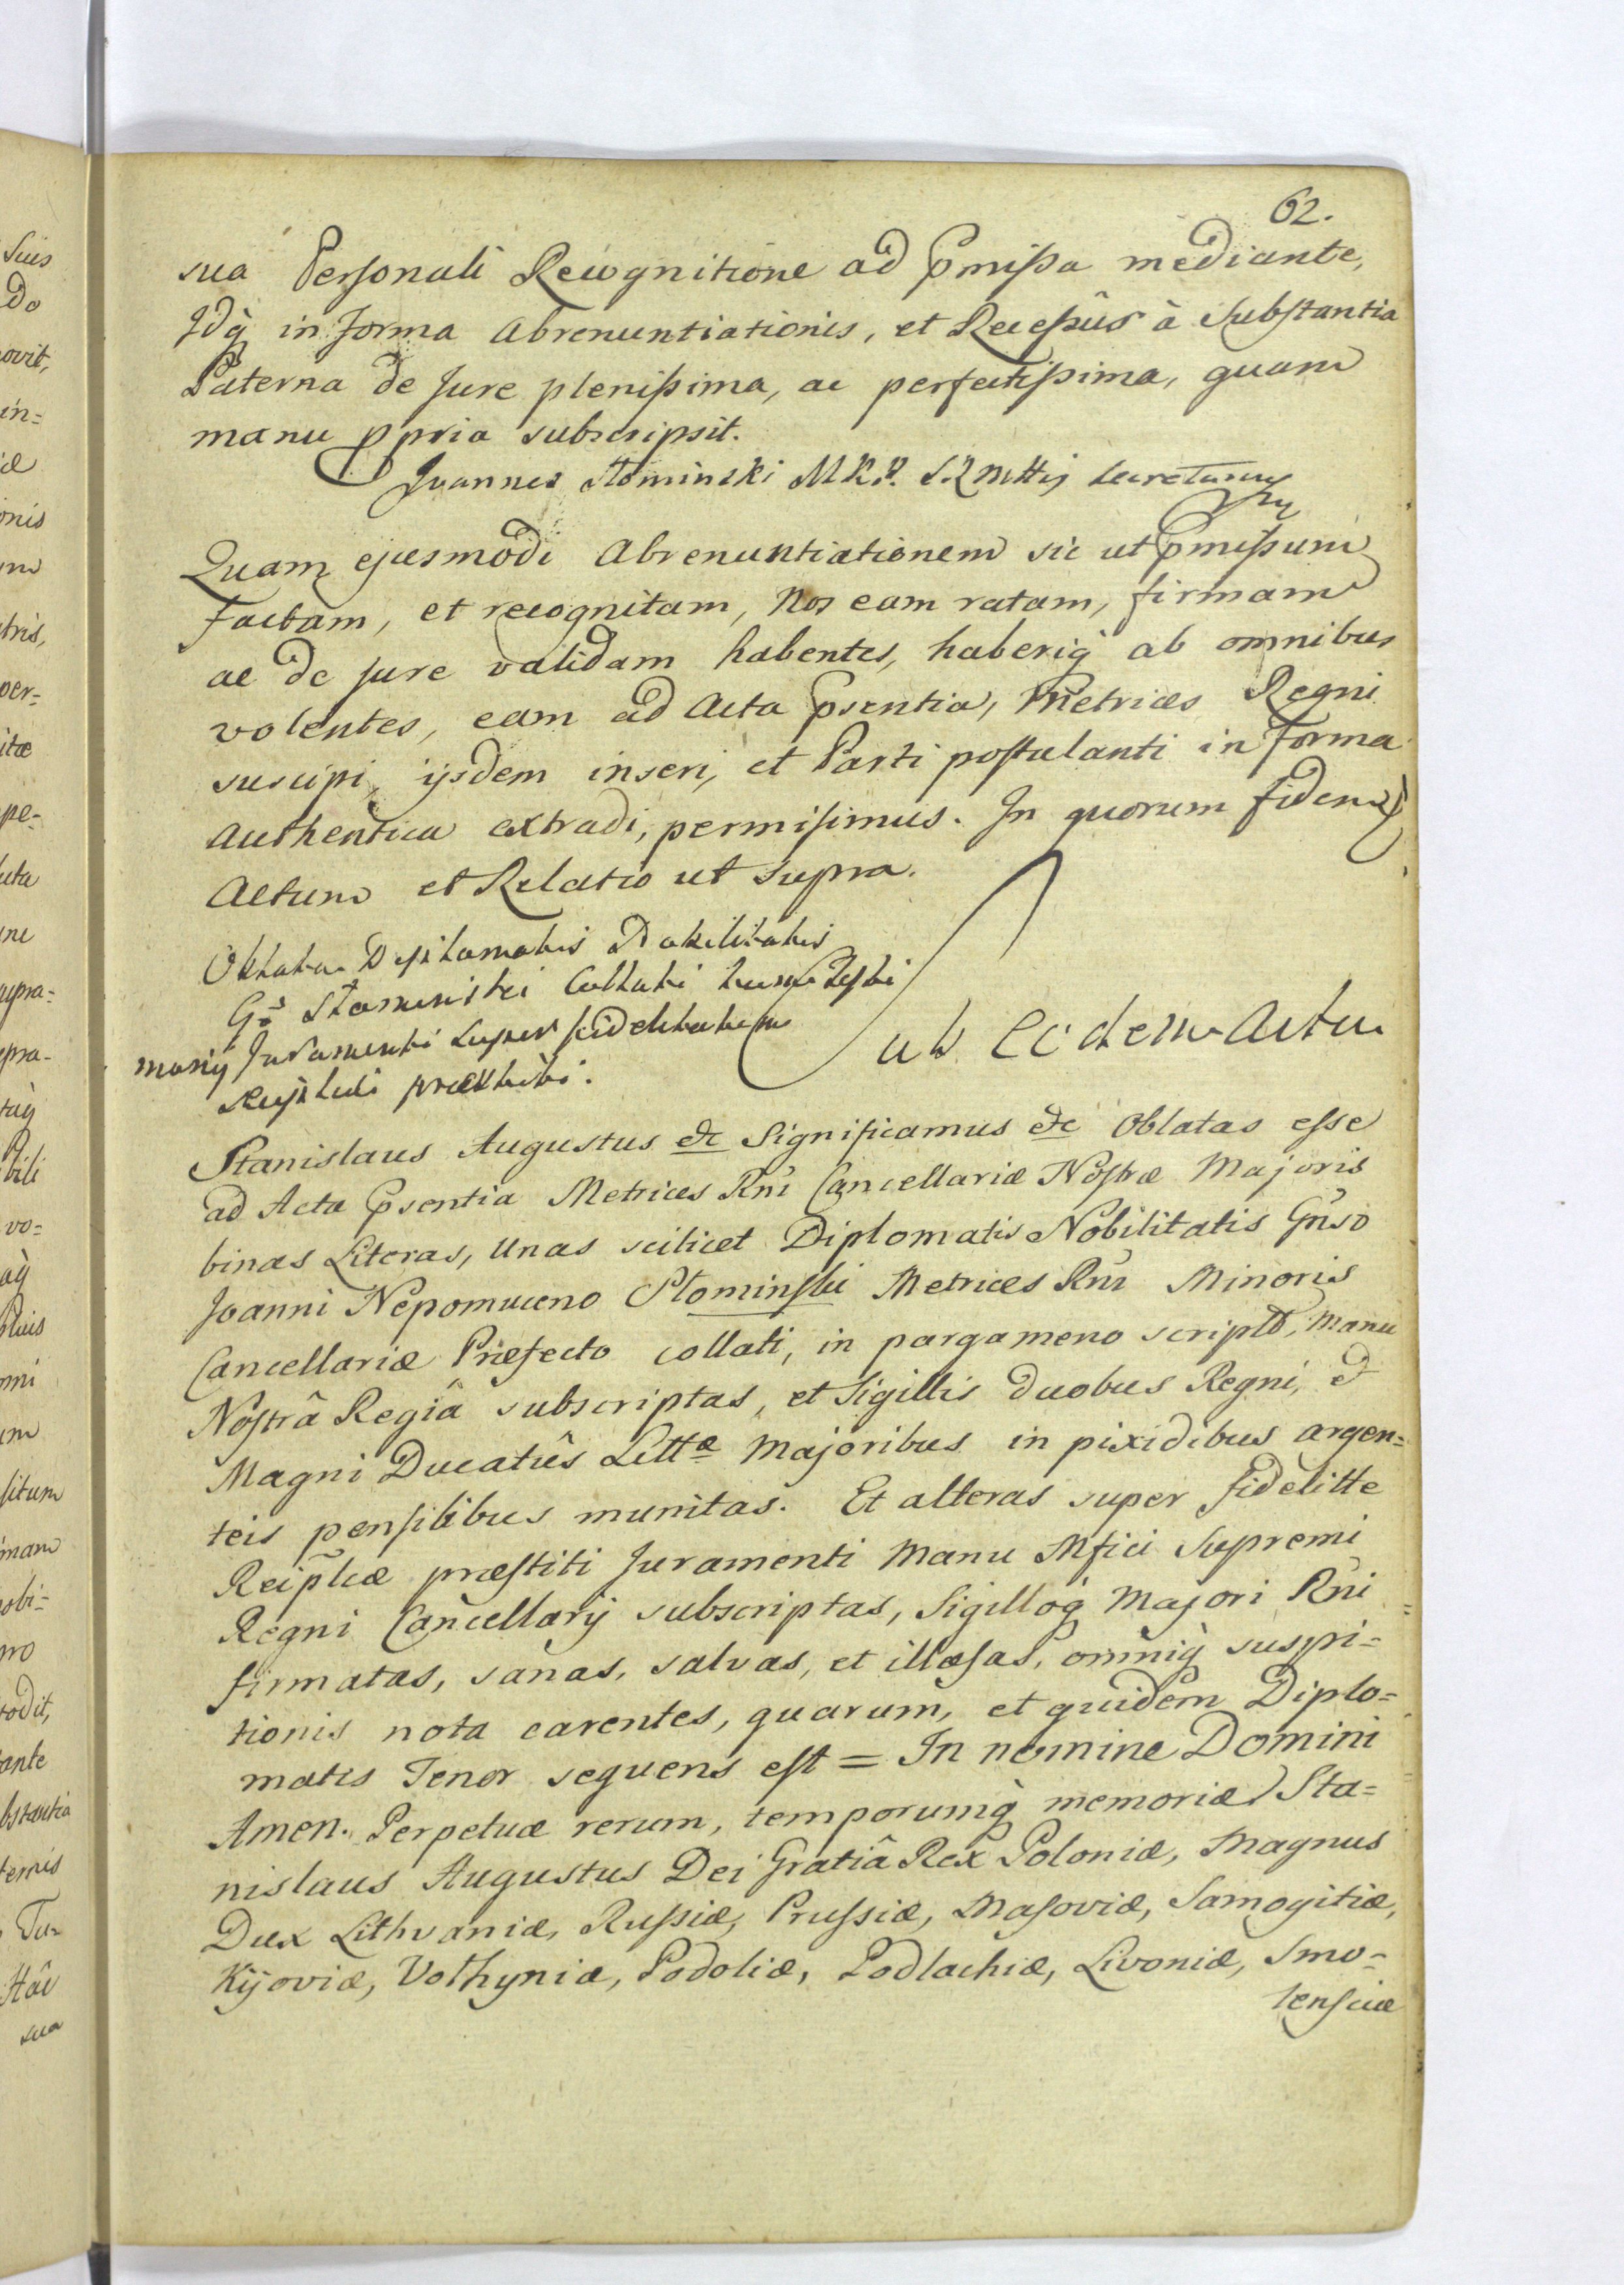 62.
sua Personali Recognitione ad pmissa mediante,
Idq in forma Abrenuntiationis, et Recessûs à Substantia
Paterna de Jure plenissima, ac perfectissima, quam
manu ppria subscripsit.
Joannes Słominski M. K. P. S. R. Mttis Secretarius
mp
Quam ejusmodi Abrenuntiationem sic ut pmissum
factam, et recognitam, Nos eam ratam, firmam
ac de jure validam habentes, haberiq ab omnibus
volentes, eam ad Acta psentia, Metrices Regni
suscipi, ijsdem inseri, et Parti postulanti in forma
Authentica extradi, permisimus. In quorum fidem
Actum et Relatio ut supra.
Oblata Diplomatis Nobilitatis
Gso Słominski Collati cum Testi
monij Juramenti super fidelitatem
Reiplicæ præstiti.
ab eodem Actu
Stanislaus Augustus etc Significamus etc Oblatas esse
ad Acta psentia Metrices Rni Cancellariæ Nostræ Majoris
binas Literas, Unas scilicet Diplomatis Nobilitatis Gnso
Joanni Nepomuceno Słominski Metrices Rni Minoris
Cancellariæ Præfecto collati, in pargameno scripto, Manu
Nostrâ Regiâ subscriptas, et Sigillis duobus Regni, et
Magni Ducatûs Littæ Majoribus in pixidibus argen=
teis pensilibus munitas. Et alteras super fidelitte
Reiplicæ præstiti Juramenti Manu Mfici Supremi
Regni Cancellarij subscriptas, Sigilloq Majori Rni
firmatas, sanas, salvas, et illæsas, omniq suspi=
tionis nota carentes, quarum, et quidem Diplo=
matis Tenor sequens est = In nomine Domini
Amen. Perpetuæ rerum, temporumq memoriæ Sta=
nislaus Augustus Dei Gratiâ Rex Poloniæ, Magnus
Dux Lithvaniæ, Russiæ, Prussiæ, Masoviæ, Samogitiæ,
Kijoviæ, Volhyniæ, Podoliæ, Podlachiæ, Livoniæ, Smo-
lensciæ